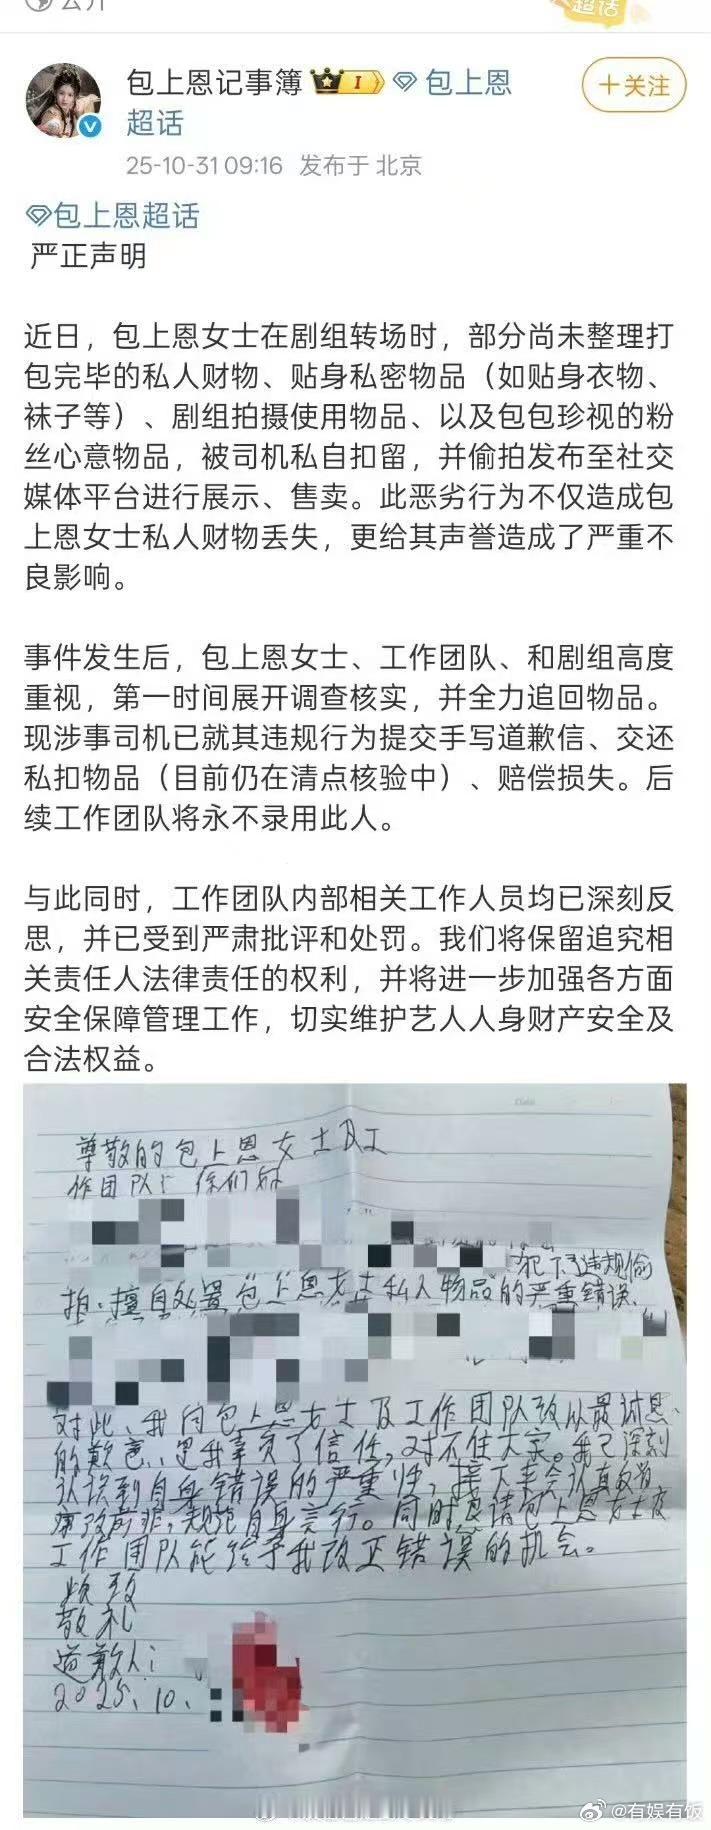 公开
超话
包上恩记事簿 I 包上恩
超话
+关注
25-10-31 09:16 发布于 北京
包上恩超话
严正声明
近日，包上恩女士在剧组转场时，部分尚未整理打
包完毕的私人财物、贴身私密物品（如贴身衣物、
袜子等）、剧组拍摄使用物品、以及包包珍视的粉
丝心意物品，被司机私自扣留，并偷拍发布至社交
媒体平台进行展示、售卖。此恶劣行为不仅造成包
上恩女士私人财物丢失，更给其声誉造成了严重不
良影响。
事件发生后，包上恩女士、工作团队、和剧组高度
重视，第一时间展开调查核实，并全力追回物品。
现涉事司机已就其违规行为提交手写道歉信、交还
私扣物品（目前仍在清点核验中）、赔偿损失。后
续工作团队将永不录用此人。
与此同时，工作团队内部相关工作人员均已深刻反
思，并已受到严肃批评和处罚。我们将保留追究相
关责任人法律责任的权利，并将进一步加强各方面
安全保障管理工作，切实维护艺人人身财产安全及
合法权益。
尊敬的包上恩女士及工
作团队：你们好
犯下违规偷
拍、擅自处置包上恩女士私人物品的严重错误、
对此、我向包上恩女士及工作团队致以最诚恳
的歉意、是我辜负了信任，对不住大家。我已深刻
认识到自身错误的严重性，接下来会认真反省
痛改前非，规范自身言行。同时恳请包上恩女士及
工作团队能给予我改正错误的机会。
敬礼
道歉人：
2025.10.
@有娱有饭